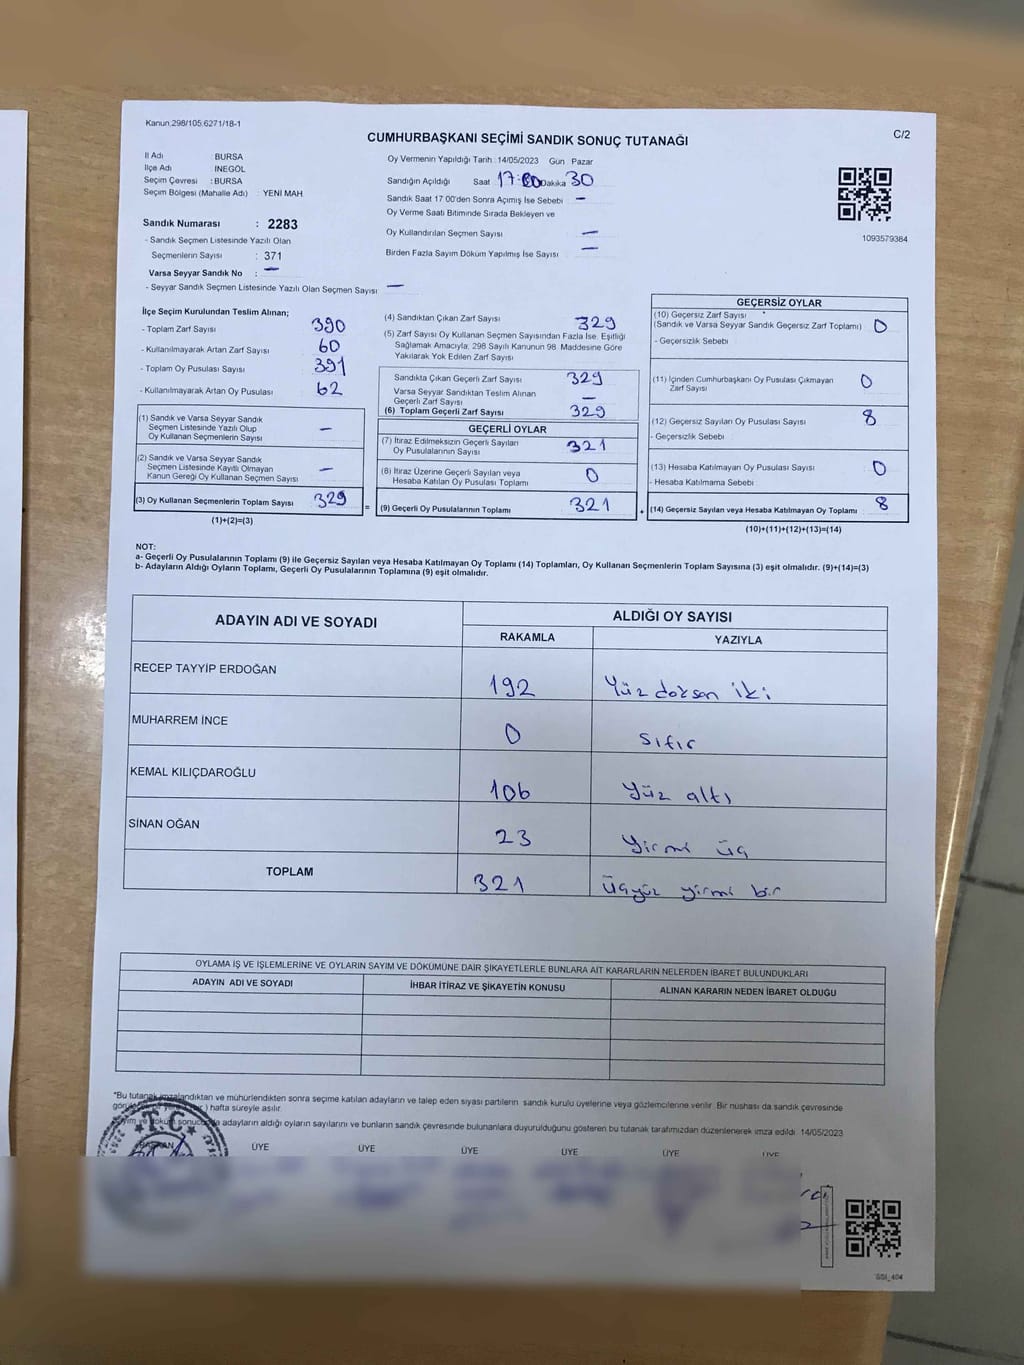 Kanun 298/105.6271/18-1
C/2
CUMHURBAŞKANI SEÇİMİ SANDIK SONUÇ TUTANAĞI
İl Adı BURSA
İlçe Adı İNEGÖL
Seçim Çevresi : BURSA
Seçim Bölgesi (Mahalle Adı) : YENİ MAH.
Sandık Numarası : 2283
- Sandık Seçmen Listesinde Yazılı Olan
Seçmenlerin Sayısı : 371
Varsa Seyyar Sandık No : —
- Seyyar Sandık Seçmen Listesinde Yazılı Olan Seçmen Sayısı : —
Oy Vermenin Yapıldığı Tarih : 14/05/2023 Gün Pazar
Sandığın Açıldığı Saat 17:00 Dakika 30
Sandık Saat 17:00'den Sonra Açılmış İse Sebebi —
Oy Verme Saati Bitiminde Sırada Bekleyen ve
Oy Kullandırılan Seçmen Sayısı —
Birden Fazla Sayım Döküm Yapılmış İse Sayısı —
1093579384
İlçe Seçim Kurulundan Teslim Alınan;
- Toplam Zarf Sayısı 390
- Kullanılmayarak Artan Zarf Sayısı 60
- Toplam Oy Pusulası Sayısı 391
- Kullanılmayarak Artan Oy Pusulası 62
(1) Sandık ve Varsa Seyyar Sandık
Seçmen Listesinde Yazılı Olup
Oy Kullanan Seçmenlerin Sayısı —
(2) Sandık ve Varsa Seyyar Sandık
Seçmen Listesinde Kayıtlı Olmayan
Kanun Gereği Oy Kullanan Seçmen Sayısı —
(3) Oy Kullanan Seçmenlerin Toplam Sayısı 329 =
(1)+(2)=(3)
(4) Sandıktan Çıkan Zarf Sayısı 329
(5) Zarf Sayısı Oy Kullanan Seçmen Sayısından Fazla İse, Eşitliği
Sağlamak Amacıyla, 298 Sayılı Kanunun 98. Maddesine Göre
Yakılarak Yok Edilen Zarf Sayısı
Sandıkta Çıkan Geçerli Zarf Sayısı 329
Varsa Seyyar Sandıktan Teslim Alınan
Geçerli Zarf Sayısı —
(6) Toplam Geçerli Zarf Sayısı 329
GEÇERLİ OYLAR
(7) İtiraz Edilmeksizin Geçerli Sayılan
Oy Pusulalarının Sayısı 321
(8) İtiraz Üzerine Geçerli Sayılan veya
Hesaba Katılan Oy Pusulası Toplamı 0
(9) Geçerli Oy Pusulalarının Toplamı 321 +
GEÇERSİZ OYLAR
(10) Geçersiz Zarf Sayısı
(Sandık ve Varsa Seyyar Sandık Geçersiz Zarf Toplamı) 0
- Geçersizlik Sebebi
(11) İçinden Cumhurbaşkanı Oy Pusulası Çıkmayan
Zarf Sayısı 0
(12) Geçersiz Sayılan Oy Pusulası Sayısı 8
- Geçersizlik Sebebi
(13) Hesaba Katılmayan Oy Pusulası Sayısı 0
- Hesaba Katılmama Sebebi
(14) Geçersiz Sayılan veya Hesaba Katılmayan Oy Toplamı 8
(10)+(11)+(12)+(13)=(14)
NOT:
a- Geçerli Oy Pusulalarının Toplamı (9) ile Geçersiz Sayılan veya Hesaba Katılmayan Oy Toplamı (14) Toplamları, Oy Kullanan Seçmenlerin Toplam Sayısına (3) eşit olmalıdır. (9)+(14)=(3)
b- Adayların Aldığı Oyların Toplamı, Geçerli Oy Pusulalarının Toplamına (9) eşit olmalıdır.
ADAYIN ADI VE SOYADI ALDIĞI OY SAYISI
RAKAMLA YAZIYLA
RECEP TAYYİP ERDOĞAN 192 Yüz doksan iki
MUHARREM İNCE 0 Sıfır
KEMAL KILIÇDAROĞLU 106 Yüz altı
SİNAN OĞAN 23 Yirmi üç
TOPLAM 321 üçyüz yirmi bir
OYLAMA İŞ VE İŞLEMLERİNE VE OYLARIN SAYIM VE DÖKÜMÜNE DAİR ŞİKAYETLERLE BUNLARA AİT KARARLARIN NELERDEN İBARET BULUNDUKLARI
ADAYIN ADI VE SOYADI İHBAR İTİRAZ VE ŞİKAYETİN KONUSU ALINAN KARARIN NEDEN İBARET OLDUĞU
"Bu tutanak imzalandıktan ve mühürlendikten sonra seçime katılan adayların ve talep eden siyasi partilerin sandık kurulu üyelerine veya gözlemcilerine verilir. Bir nüshası da sandık çevresinde
hafta süreyle asılır.
adayların aldığı oyların sayılarını ve bunların sandık çevresinde bulunanlara duyurulduğunu gösteren bu tutanak tarafımızdan düzenlenerek imza edildi. 14/05/2023
T.C.
BAŞKAN ÜYE ÜYE ÜYE ÜYE ÜYE ÜYE
SSI_404